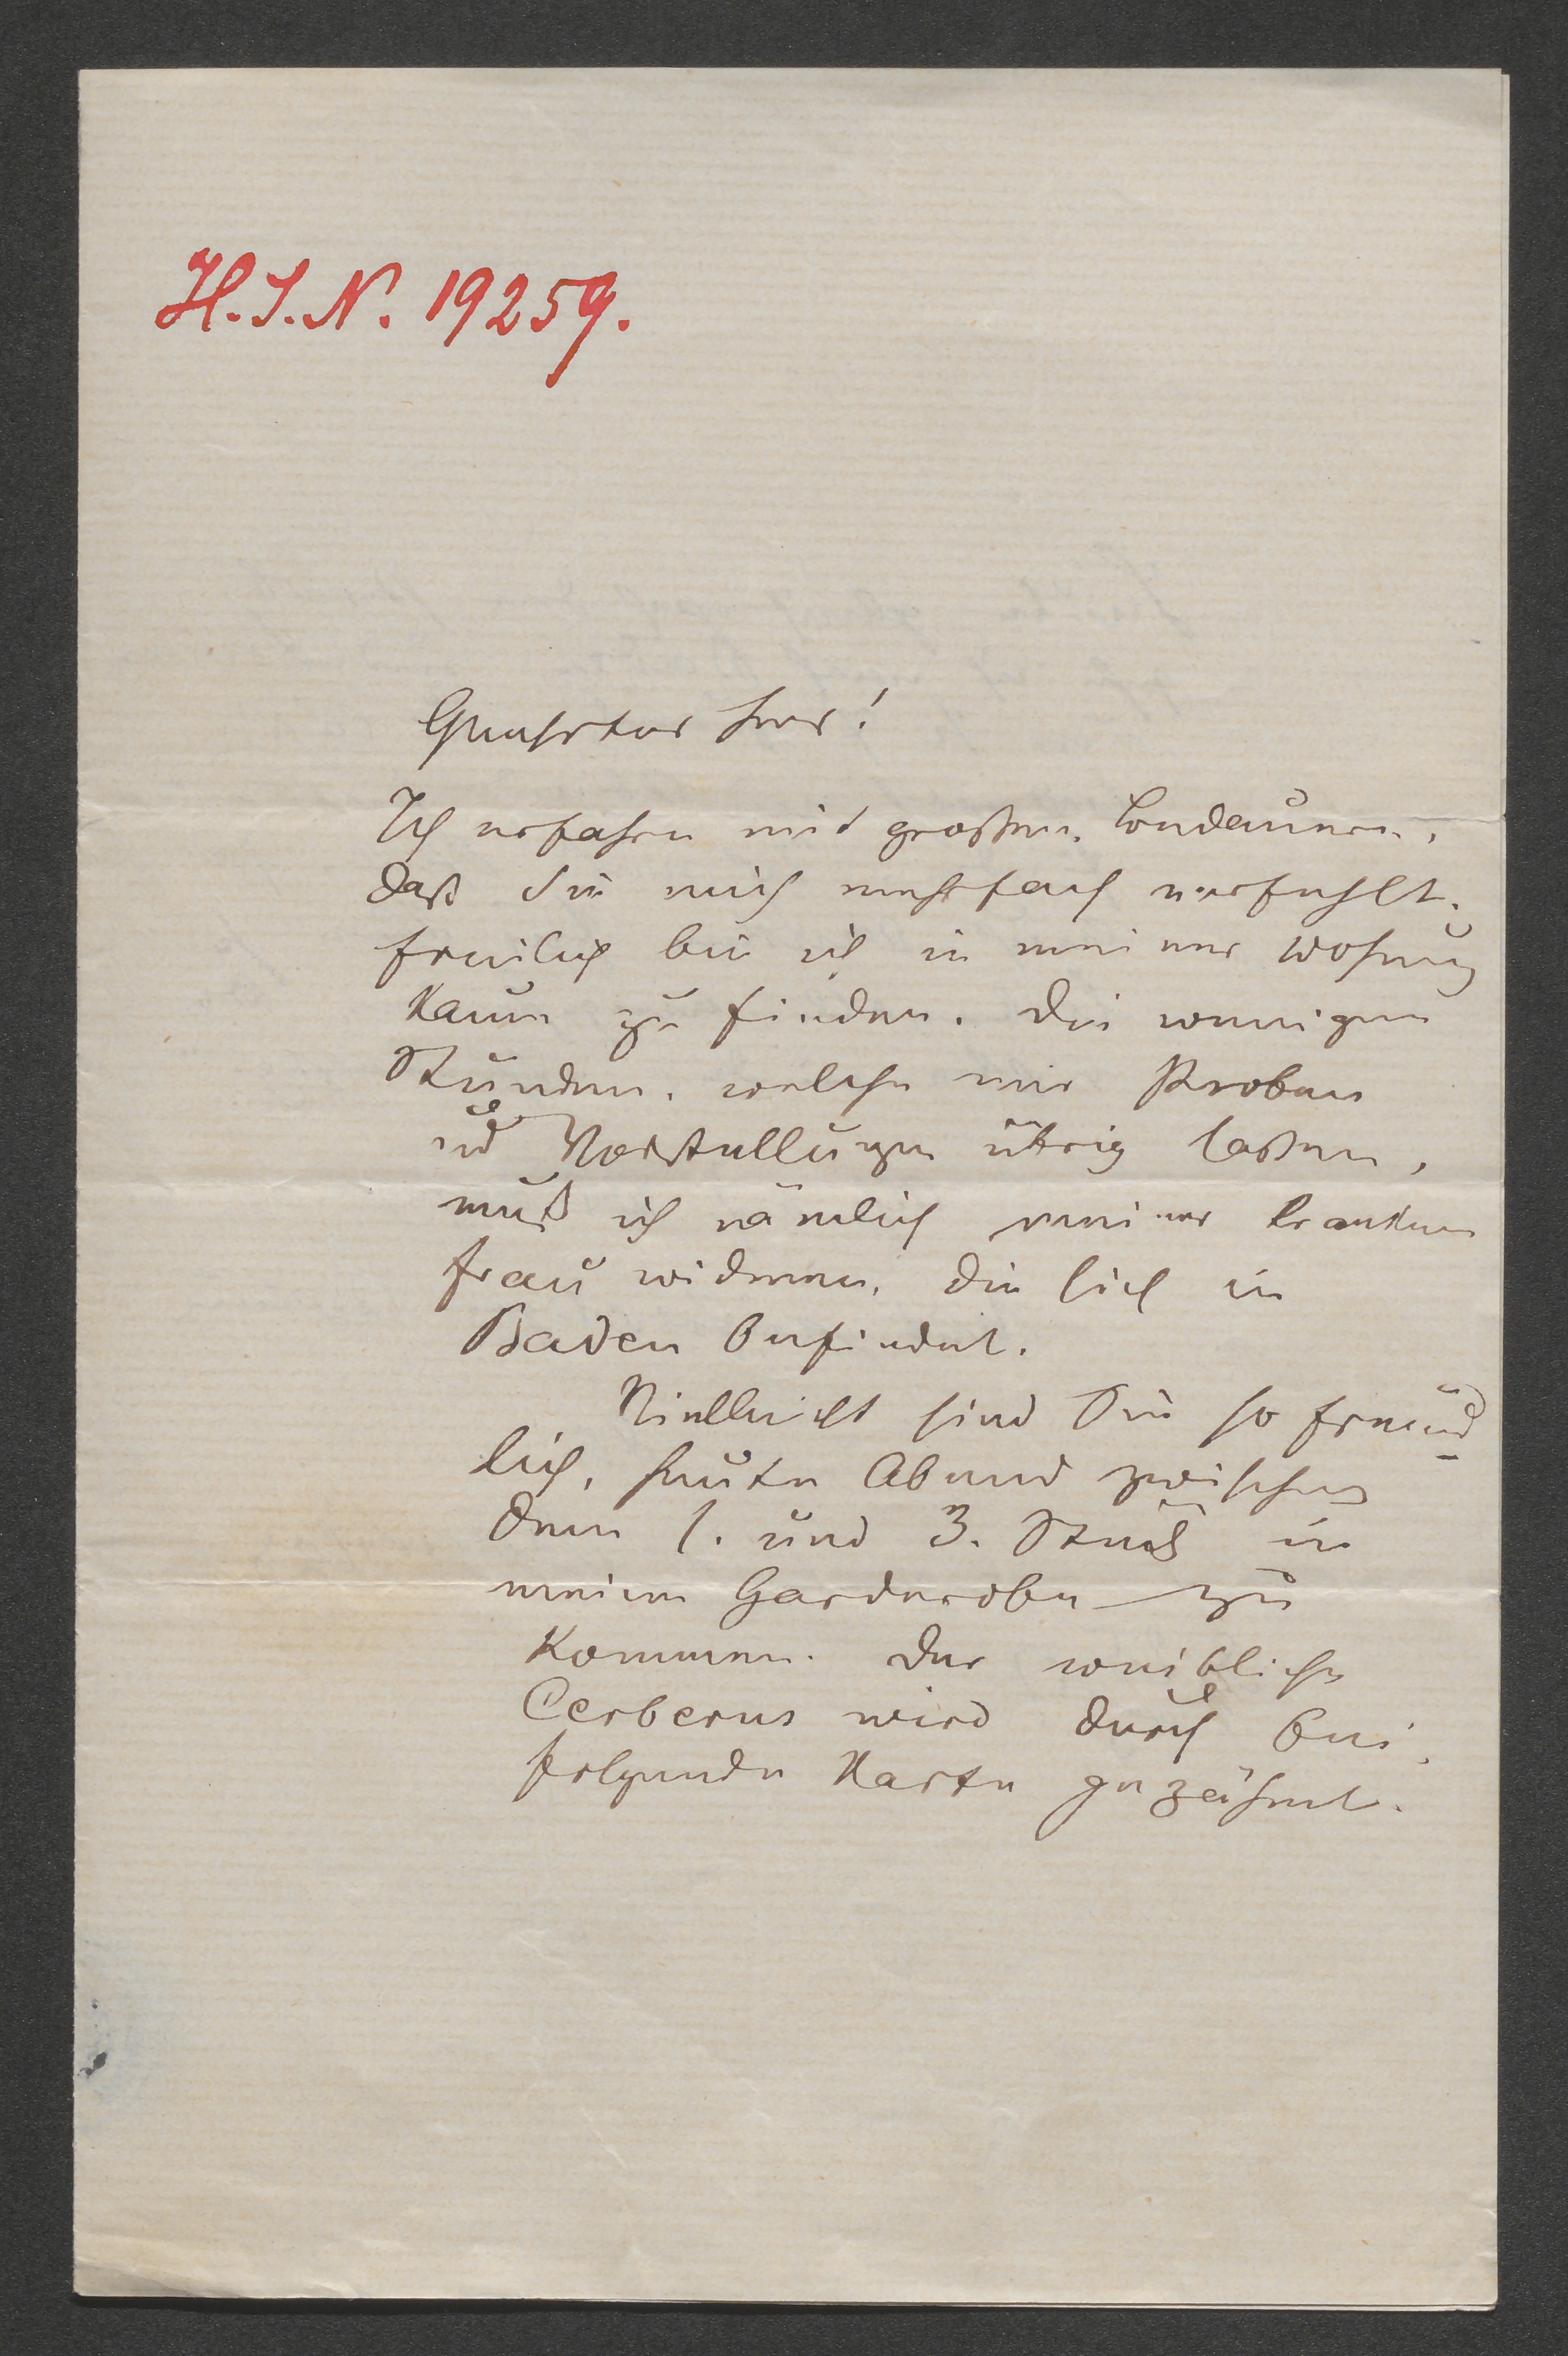 H.I.N. 19259.
Geehrter Herr!
Ich erfahre mit großem Bedauern,
daß Sie mich mehrfach verfehlt.
Freilich bin ich in meiner Wohnung
kaum zu finden. Die wenigen
Stunden, welche mir Proben
und Vorstellungen übrig laßen,
muß ich nämlich meiner kranken
Frau widmen, die sich in
Baden befindet.
Vielleicht sind Sie so freund-
lich, heute Abend zwischen
dem 1. und 3. Stück in
meine Garderobe zu
kommen. Der weibliche
Cerberus wird durch bei-
folgende Karte gezähmt.